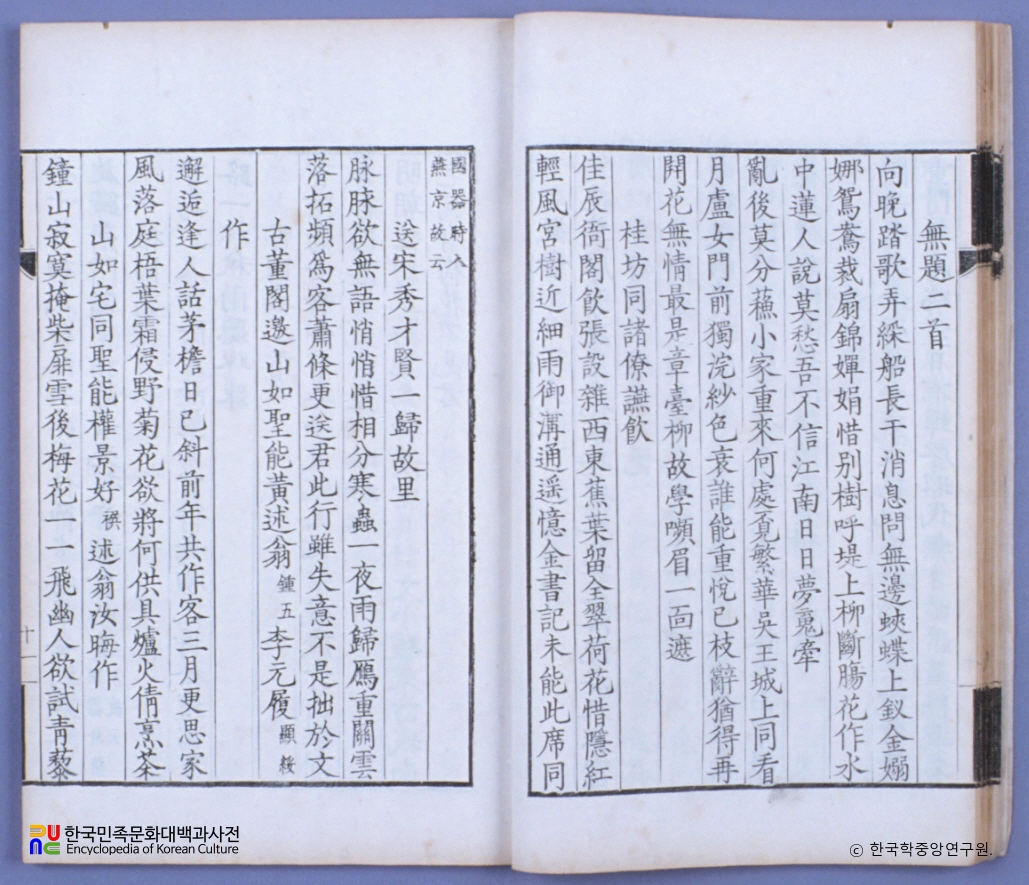 無題二首
向晚踏歌弄綵船長干消息問無邊蛺蝶上釵金嫋
娜鴛鴦裁扇錦嬋娟惜別樹呼堤上柳斷腸花作水
中蓮人說莫愁吾不信江南日日夢魂牽
亂後莫分蘓小家重來何處覔繁華吳王城上同看
月盧女門前獨浣紗色衰誰能重悅已枝辭猶得再
開花無情最是章臺柳故學嚬眉一面遮
桂坊同諸僚讌飮
佳辰銜閣飮張設雜西東蕉葉留全翠荷花惜隱紅
輕風宮樹近細雨御溝通遥憶金書記未能此席同
國器時入
燕京故云
送宋秀才賢一歸故里
脉脉欲無語悄悄惜相分寒蟲一夜雨歸鴈重關雲
落拓頻爲客蕭條更送君此行雖失意不是拙於文
古董閣邀山如聖能黃述翁鍾五李元履顯綏
作
邂逅逢人話茅檐日已斜前年共作客三月更思家
風落庭梧葉霜侵野菊花欲將何供具爐火倩烹茶
山如宅同聖能權景好襈述翁汝晦作
鐘山寂寞掩柴扉雪後梅花一一飛幽人欲試靑藜
十一
한국민족문화대백과사전
Encyclopedia of Korean Culture
ⓒ 한국학중앙연구원.